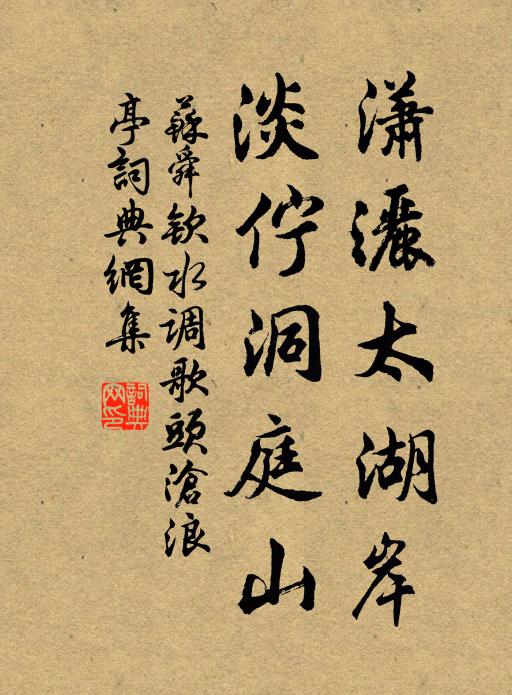 瀟灑太湖岸
淡佇洞庭山
蘇舜欽水调歌頭滄浪
亭詞典網集
詞典
网印